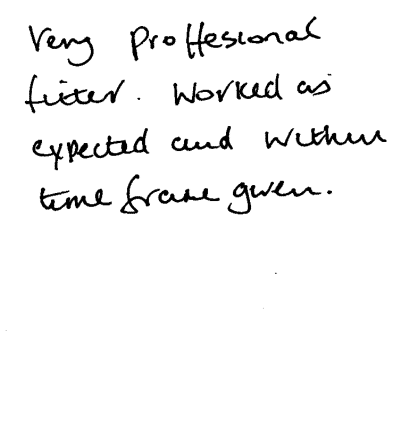 Very Proffesional
fitter. Worked as
expected and within
time frame given.